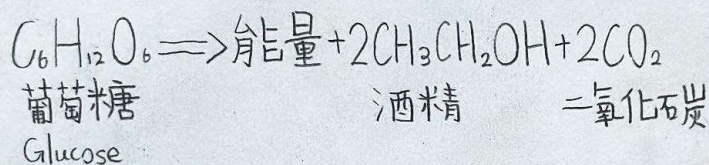 C₆H₁₂O₆ ⟹ 能量 + 2CH₃CH₂OH + 2CO₂
葡萄糖 酒精 二氧化石炭
Glucose